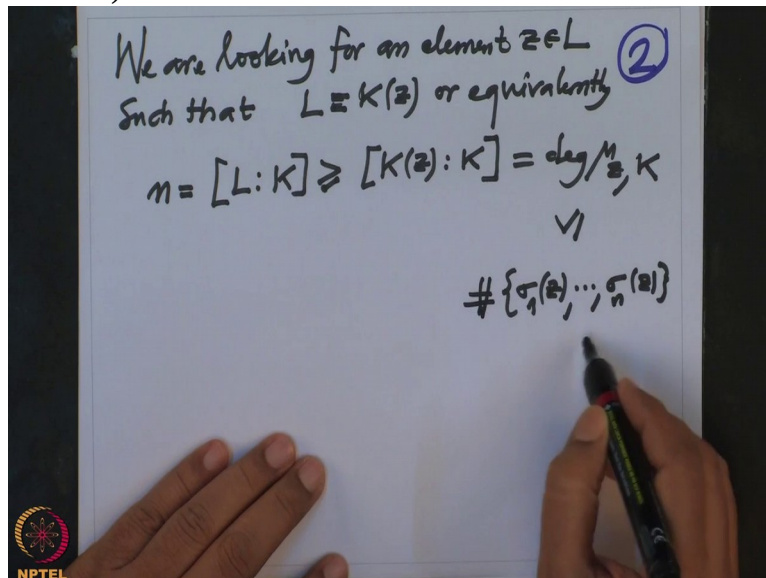 We are looking for an element z ∈ L
Such that L = K(z) or equivalently
②
n = [L : K] ⩾ [K(z) : K] = deg μ_z, K
⩾
# {σ₁(z), ⋯, σₙ(z)}
NPTEL